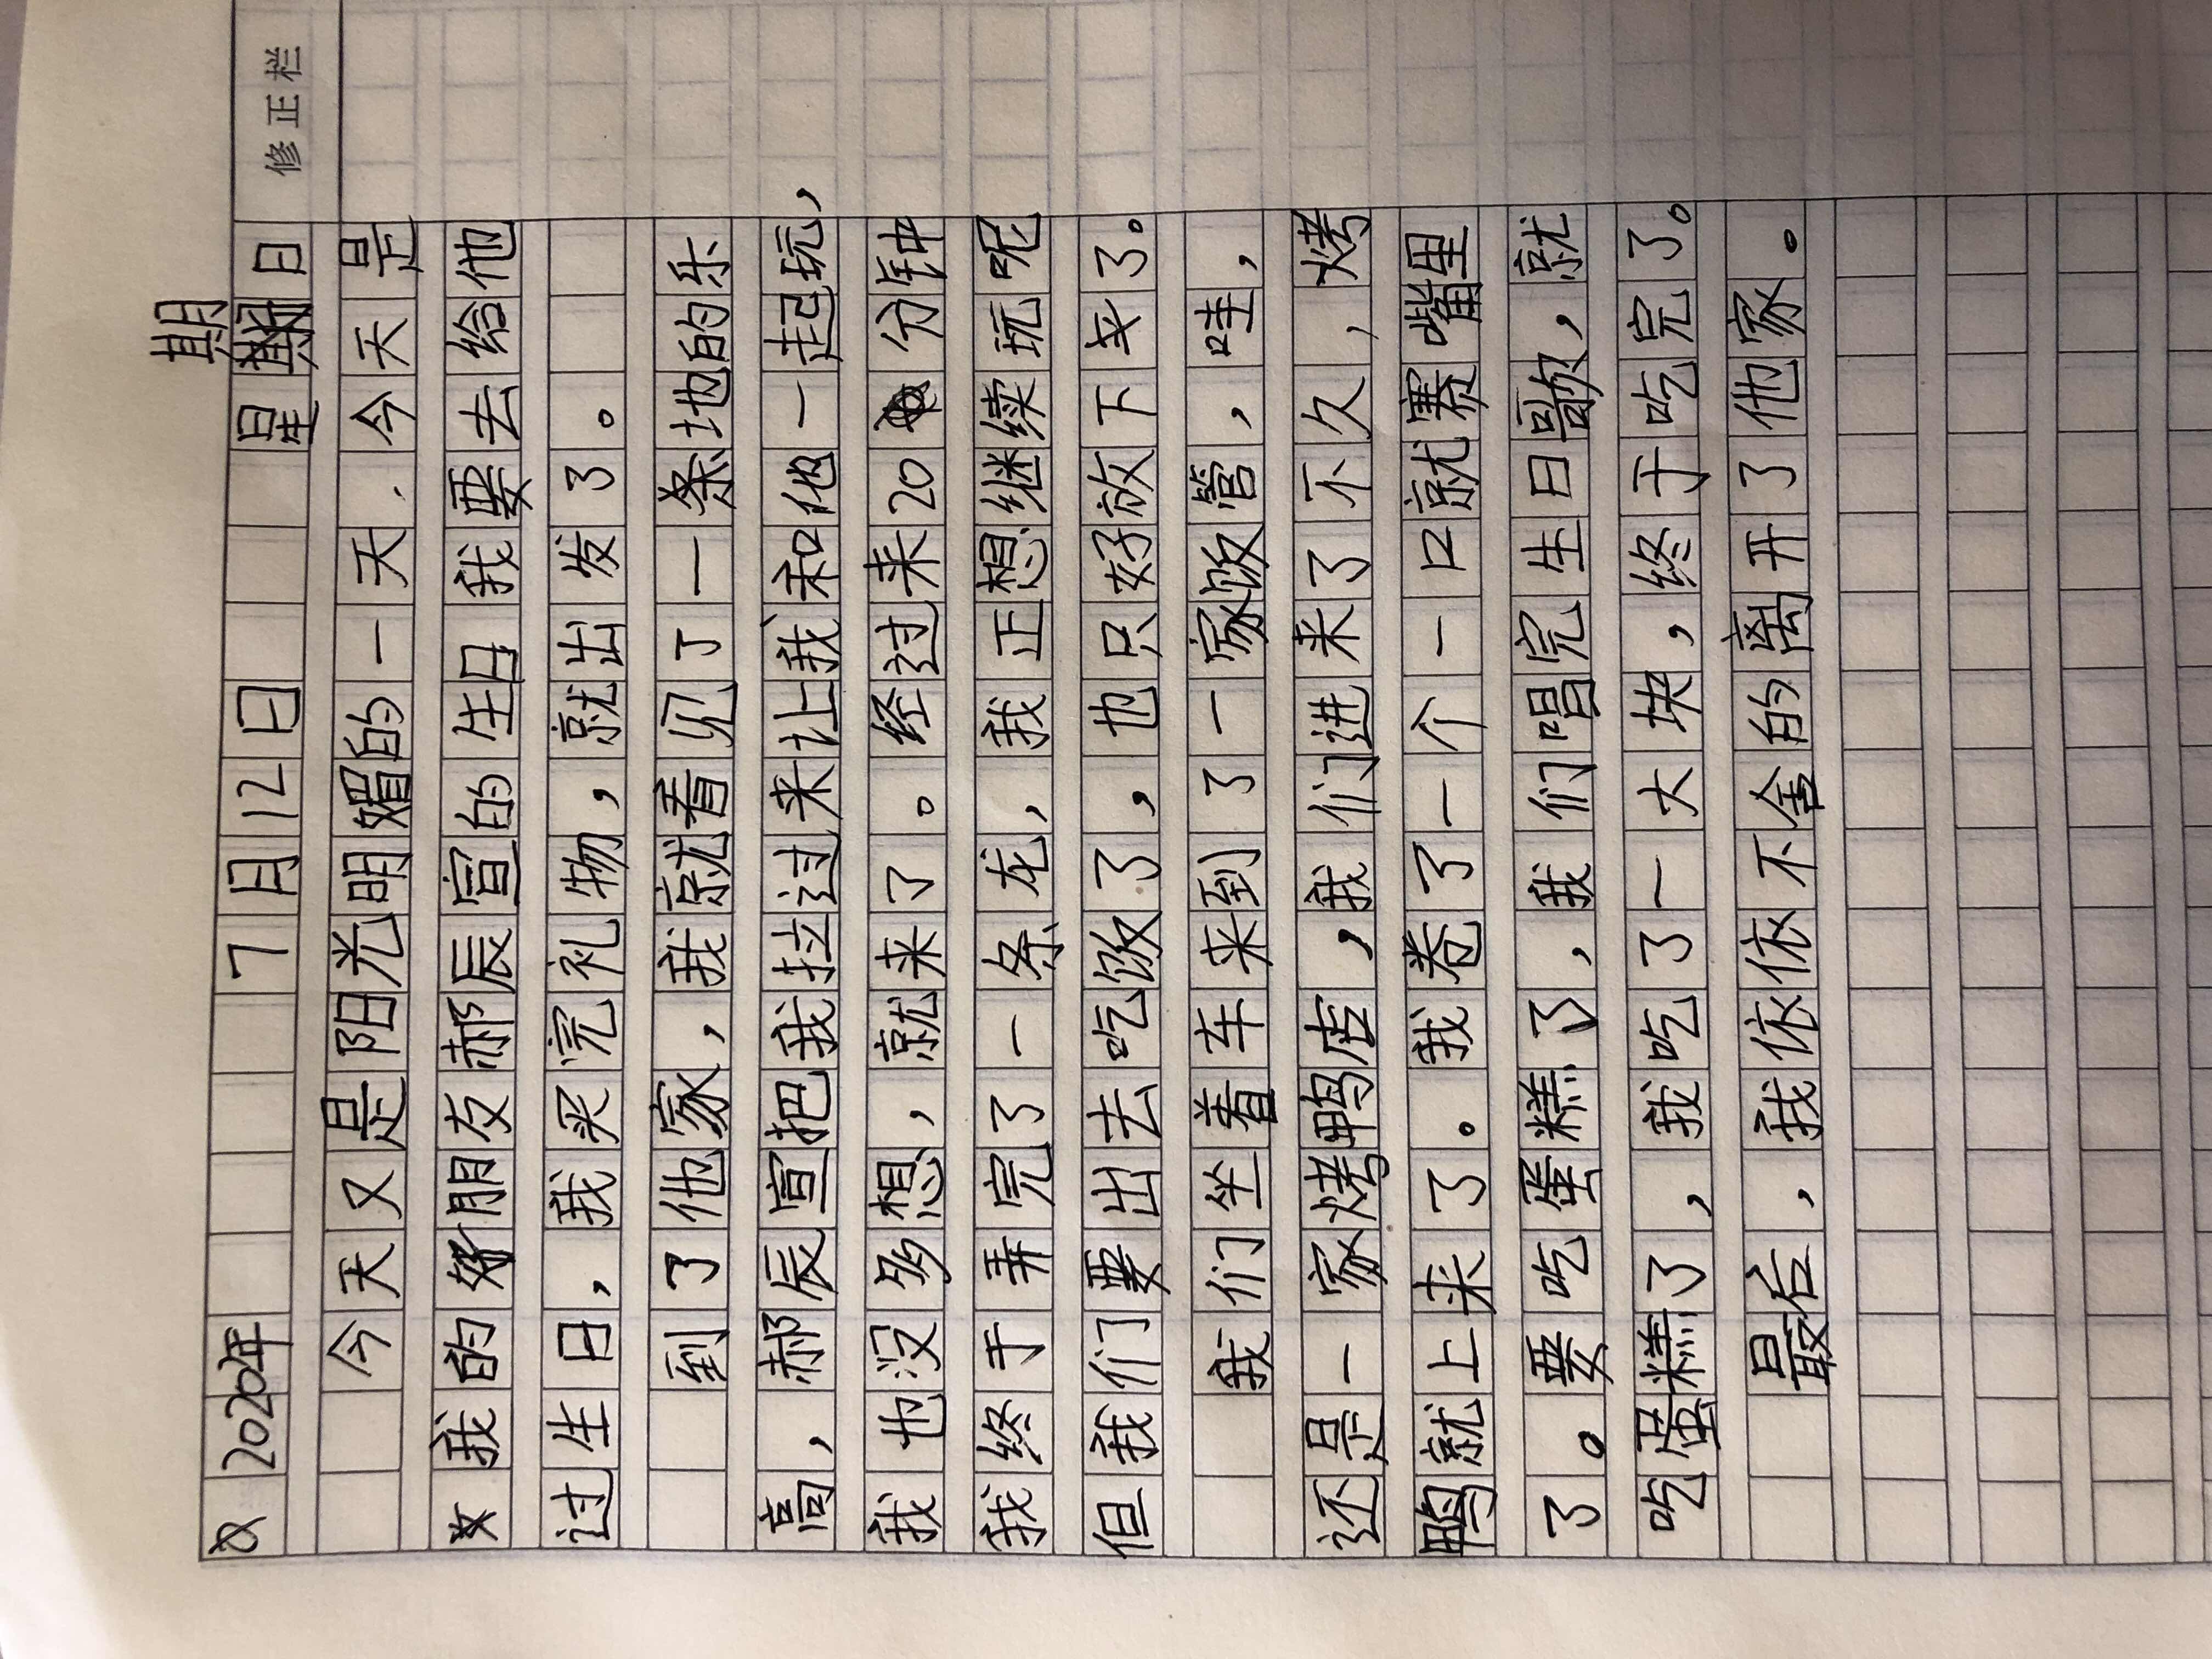 2020年 7月12日 星期日
修正栏
今天又是阳光明媚的一天.今天是
我的好朋友郝辰宣的生日我要去给他
过生日,我买完礼物,就出发了。
到了他家,我就看见了一条地的乐
高,郝辰宣把我拉过来让我和他一起玩,
我也没多想,就来了。经过来20分钟
我终于弄完了一条龙,我正想继续玩呢
但我们要出去吃饭了,也只好放下手了。
我们坐着车来到了一家饭管,哇,
还是一家烤鸭店,我们进来了不久,烤
鸭就上来了.我卷了一个一口就赛嘴里
了。要吃蛋糕了,我们唱完生日歌,就
吃蛋糕了,我吃了一大块,终于吃完了。
最后,我依依不舍的离开了他家.